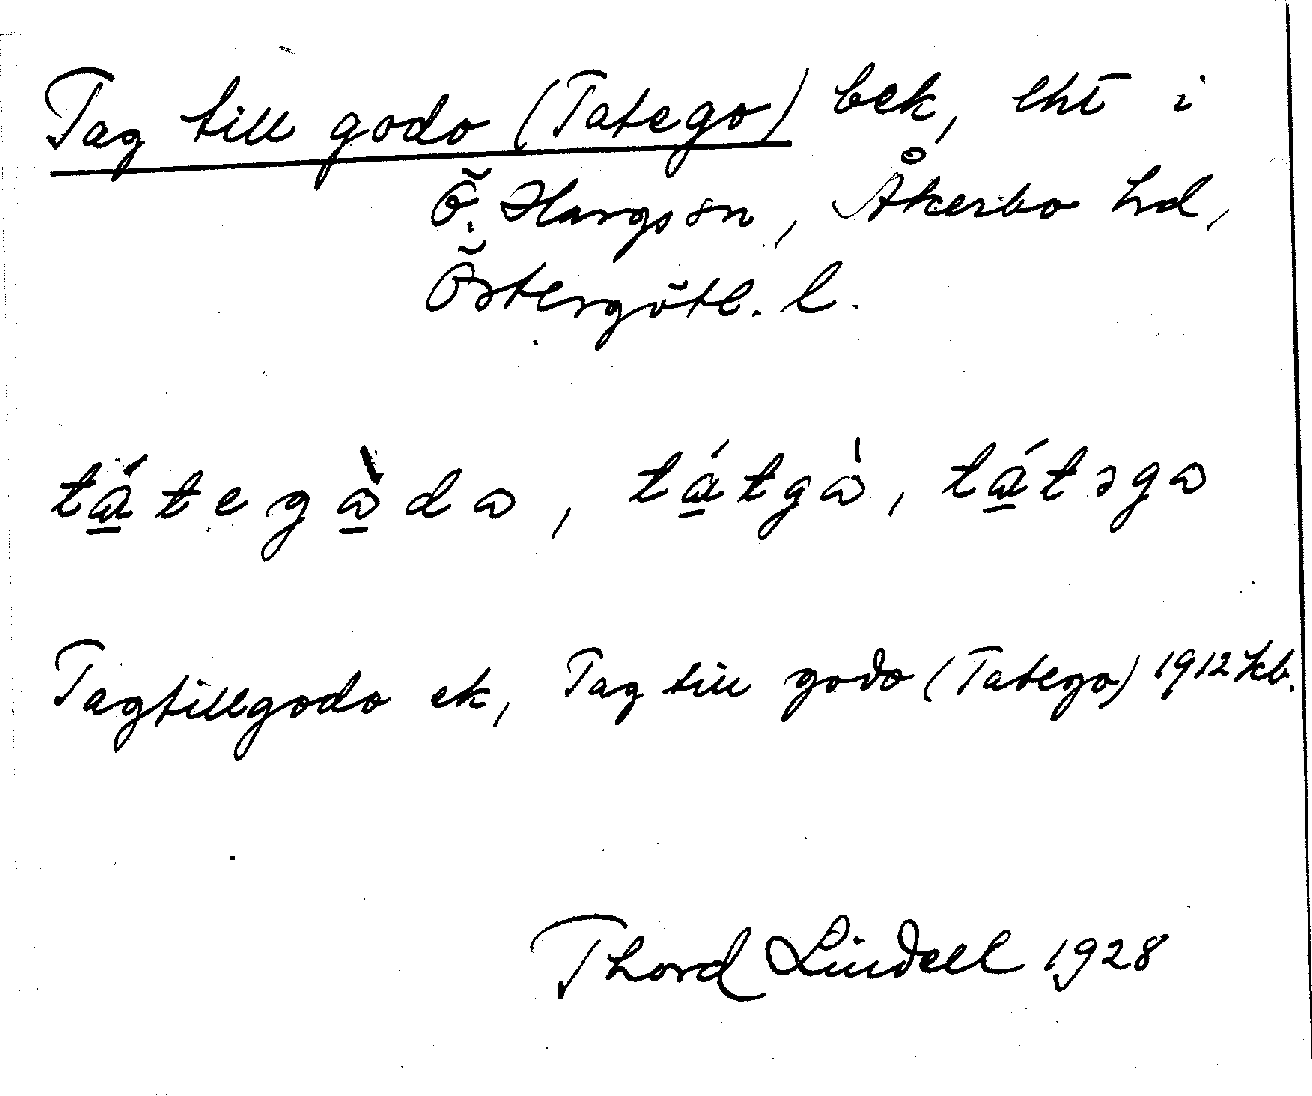 Tag till godo (Tatego) bek, lht i
Ö. Hargs sn, Åkerbo hd,
Östergötl. l.
tá̱tegà̱da, tá̱tgà, tá̱təga
Tagtillgodo ek, Tag till godo (Tatego) 1912 kb.
Thord Lindell 1928